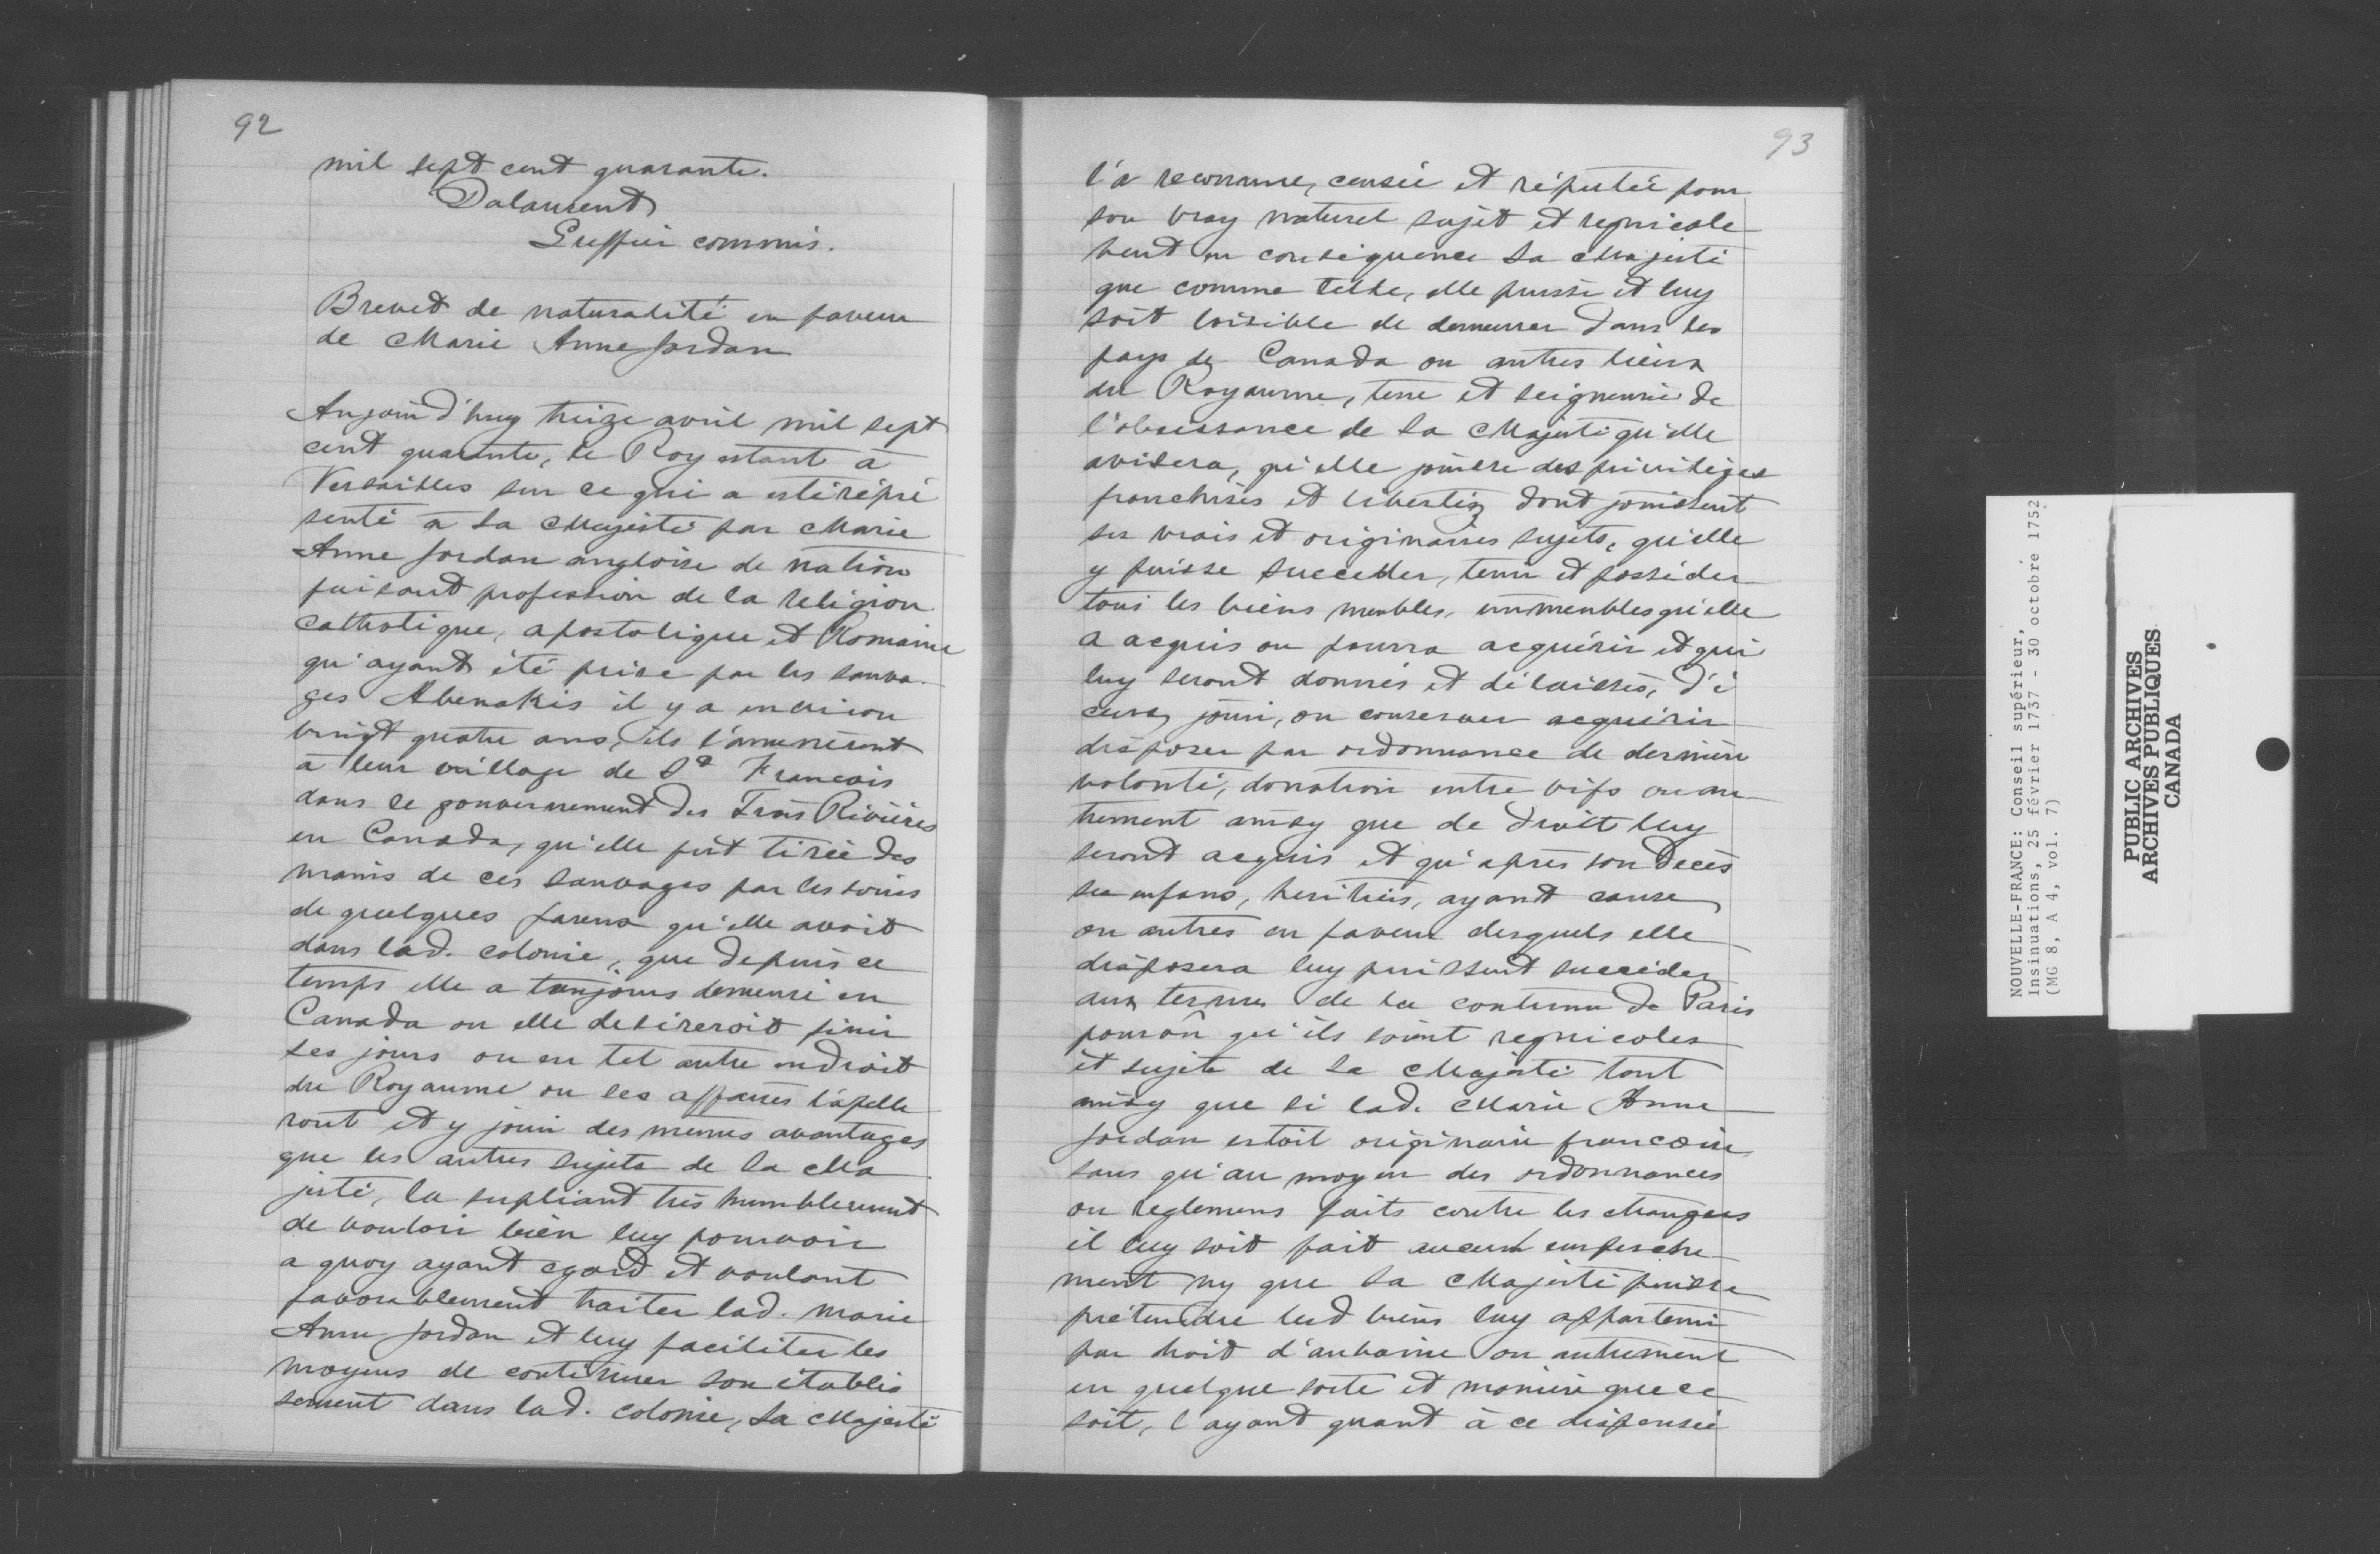 92
mil sept cent quarante.
Dalaurent
Greffier commis.
Brevet de naturalité en faveur
de Marie Anne Jordan
Aujourd'huy treize avril mil sept
cent quarante, le Roy estant à
Versailles sur ce qui a esté répré
senté à Sa Majesté par Marie
Anne Jordan angloise de nation
faisant profession de la religion
Catholique, apostolique et Romaine
qu'ayant été prise par les sauva-
ges Abenakis il y a environ
vingt quatre ans, ils l'amenèrent
à leur village de St François
dans le gouvernement des Trois Rivières
en Canada, qu'elle fut tirée des
mains de ces sauvages par les soins
de quelques parens qu'elle avoit
dans lad. colonie, que depuis ce
temps elle a toujours demeuré en
Canada ou elle desireroit finir
ses jours ou en tel autre endroit
du Royaume ou ses affaires l'apelle
ront et y jouir des memes avantages
que les autres sujets de Sa Ma
jesté, la supliant très humblement
de vouloir bien luy pourvoir
a quoy ayant egard et voulant
favorablement traiter lad. Marie
Anne Jordan et luy faciliter les
moyens de continuer son établis
sement dans lad. colonie, Sa Majesté
93
l'a reconnue, censée et réputée pour
son vray naturel sujet et regnicole
veut en conséquence Sa Majesté
que comme telle, elle puisse et luy
soit loisible de demeurer dans les
pays de Canada ou autres lieux
du Royaume, terre et seigneurie de
l'obeissance de Sa Majesté qu'elle
avisera, qu'elle jouisse des privilèges
franchises et libertez dont jouissent
ses vrais et originaires sujets, qu'elle
y puisse succeder, tenir et posséder
tous les biens meubles, immeubles qu'elle
a acquis ou pourra acquérir et qui
luy seront donnés et délaissés, d'i
ceux jouir, ou conserver acquérir
disposer par ordonnance de dernière
volonté, donation entre vifs ou au
trement ainsy que de droit luy
seront acquis et qu'après son decès
ses enfans, heritiers, ayant cause
ou autres en faveur desquels elle
disposera luy puissent succéder
aux termes de la coutume de Paris
pourvû qu'ils soient regnicoles
et sujets de Sa Majesté tout
ainsy que si lad. Marie Anne
Jordan estoit originaire francoise
sans qu'au moyen des ordonnances
ou reglemens faits contre les etrangers
il luy soit fait aucun empesche-
ment ny que Sa Majesté puisse
prétendre lesd biens luy appartenir
par droit d'aubaine ou autrement
en quelque sorte et manière que ce
soit, l'ayant quant à ce dispensée
NOUVELLE-FRANCE: Conseil supérieur,
Insinuations, 25 février 1737 - 30 octobre 1752
(MG 8, A 4, vol. 7)
PUBLIC ARCHIVES
ARCHIVES PUBLIQUES
CANADA